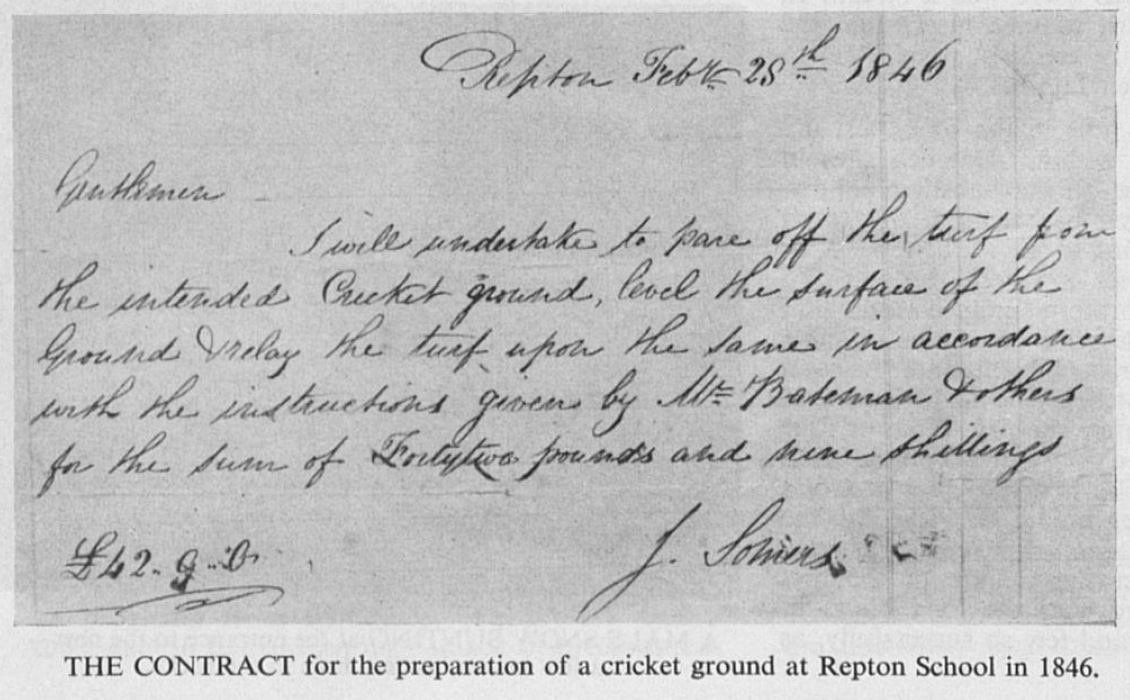 Repton Feby 28th 1846
Gentlemen
I will undertake to pare off the turf from
the intended Cricket ground, level the surface of the
Ground & relay the turf upon the same in accordance
with the instructions given by Mr Bateman & others
for the sum of Fortytwo pounds and nine shillings
£42. 9. 0.
J. Somers
THE CONTRACT for the preparation of a cricket ground at Repton School in 1846.